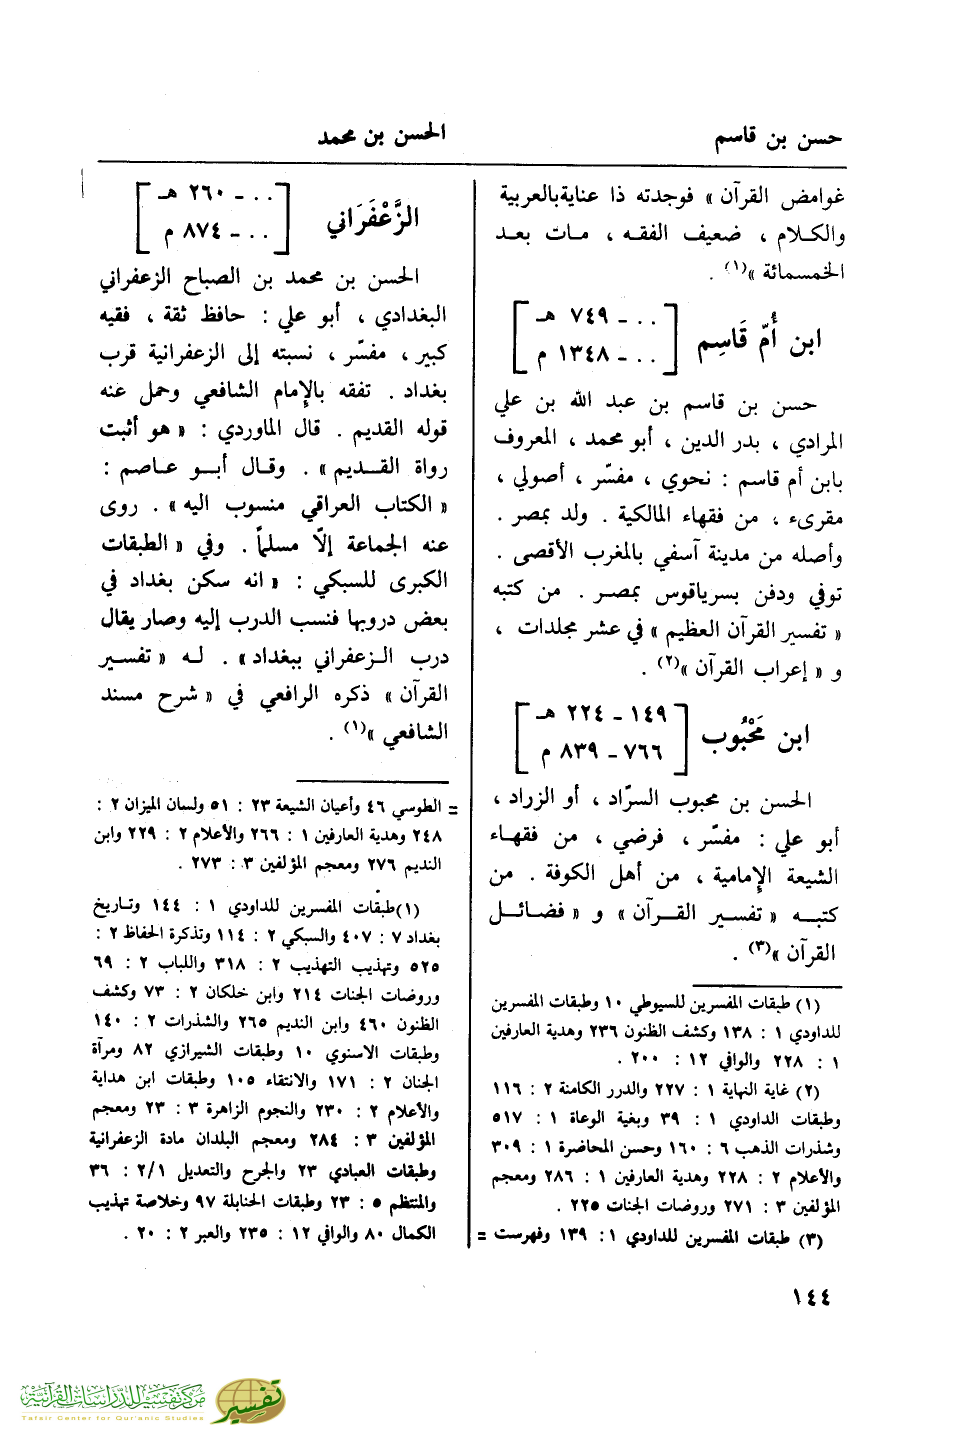 حسن بن قاسم
الحسن بن محمد
غوامض القرآن » فوجدته ذا عناية بالعربية
والكلام ، ضعيف الفقه ، مات بعد
الخمسمائة »(١) .
ابن أُمّ قَاسِم
[ . . ـ ٧٤٩ هـ
. . ـ ١٣٤٨ م ]
حسن بن قاسم بن عبد الله بن علي
المرادي ، بدر الدين ، أبو محمد ، المعروف
بابن أم قاسم : نحوي ، مفسّر ، أصولي ،
مقرىء ، من فقهاء المالكية . ولد بمصر .
وأصله من مدينة آسفي بالمغرب الأقصى .
توفي ودفن بسرياقوس بمصر . من كتبه
« تفسير القرآن العظيم » في عشر مجلدات ،
و « إعراب القرآن »(٢) .
ابن مَحْبُوب
[ ١٤٩ ـ ٢٢٤ هـ
٧٦٦ ـ ٨٣٩ م ]
الحسن بن محبوب السرّاد ، أو الزراد ،
أبو علي : مفسّر ، فرضي ، من فقهاء
الشيعة الإمامية ، من أهل الكوفة . من
كتبه « تفسير القرآن » و « فضائل
القرآن »(٣) .
(١) طبقات المفسرين للسيوطي ١٠ وطبقات المفسرين
للداودي ١ : ١٣٨ وكشف الظنون ٢٣٦ وهدية العارفين
١ : ٢٢٨ والوافي ١٢ : ٢٠٠ .
(٢) غاية النهاية ١ : ٢٢٧ والدرر الكامنة ٢ : ١١٦
وطبقات الداودي ١ : ٣٩ وبغية الوعاة ١ : ٥١٧
وشذرات الذهب ٦ : ١٦٠ وحسن المحاضرة ١ : ٣٠٩
والأعلام ٢ : ٢٢٨ وهدية العارفين ١ : ٢٨٦ ومعجم
المؤلفين ٣ : ٢٧١ وروضات الجنات ٢٢٥ .
(٣) طبقات المفسرين للداودي ١ : ١٣٩ وفهرست =
الزَّعْفَرَاني
[ . . ـ ٢٦٠ هـ
. . ـ ٨٧٤ م ]
الحسن بن محمد بن الصباح الزعفراني
البغدادي ، أبو علي : حافظ ثقة ، فقيه
كبير ، مفسّر ، نسبته إلى الزعفرانية قرب
بغداد . تفقه بالإمام الشافعي وحمل عنه
قوله القديم . قال الماوردي : « هو أثبت
رواة القديم » . وقال أبو عاصم :
« الكتاب العراقي منسوب اليه » . روى
عنه الجماعة إلاّ مسلماً . وفي « الطبقات
الكبرى للسبكي : « انه سكن بغداد في
بعض دروبها فنسب الدرب إليه وصار يقال
درب الزعفراني ببغداد » . له « تفسير
القرآن » ذكره الرافعي في « شرح مسند
الشافعي »(١) .
= الطوسي ٤٦ وأعيان الشيعة ٢٣ : ٥١ ولسان الميزان ٢ :
٢٤٨ وهدية العارفين ١ : ٢٦٦ والأعلام ٢ : ٢٢٩ وابن
النديم ٢٧٦ ومعجم المؤلفين ٣ : ٢٧٣ .
(١) طبقات المفسرين للداودي ١ : ١٤٤ وتاريخ
بغداد ٧ : ٤٠٧ والسبكي ٢ : ١١٤ وتذكرة الحفاظ ٢ :
٥٢٥ وتهذيب التهذيب ٢ : ٣١٨ واللباب ٢ : ٦٩
وروضات الجنات ٢١٤ وابن خلكان ٢ : ٧٣ وكشف
الظنون ٤٦٠ وابن النديم ٢٦٥ والشذرات ٢ : ١٤٠
وطبقات الاسنوي ١٠ وطبقات الشيرازي ٨٢ ومرآة
الجنان ٢ : ١٧١ والانتقاء ١٠٥ وطبقات ابن هداية
والأعلام ٢ : ٢٣٠ والنجوم الزاهرة ٣ : ٢٣ ومعجم
المؤلفين ٣ : ٢٨٤ ومعجم البلدان مادة الزعفرانية
وطبقات العبادي ٢٣ والجرح والتعديل ٢/١ : ٣٦
والمنتظم ٥ : ٢٣ وطبقات الحنابلة ٩٧ وخلاصة تهذيب
الكمال ٨٠ والوافي ١٢ : ٢٣٥ والعبر ٢ : ٢٠ .
١٤٤
مركز تفسير للدراسات القرآنية
Tafsir Center for Qur'anic Studies
تفسير